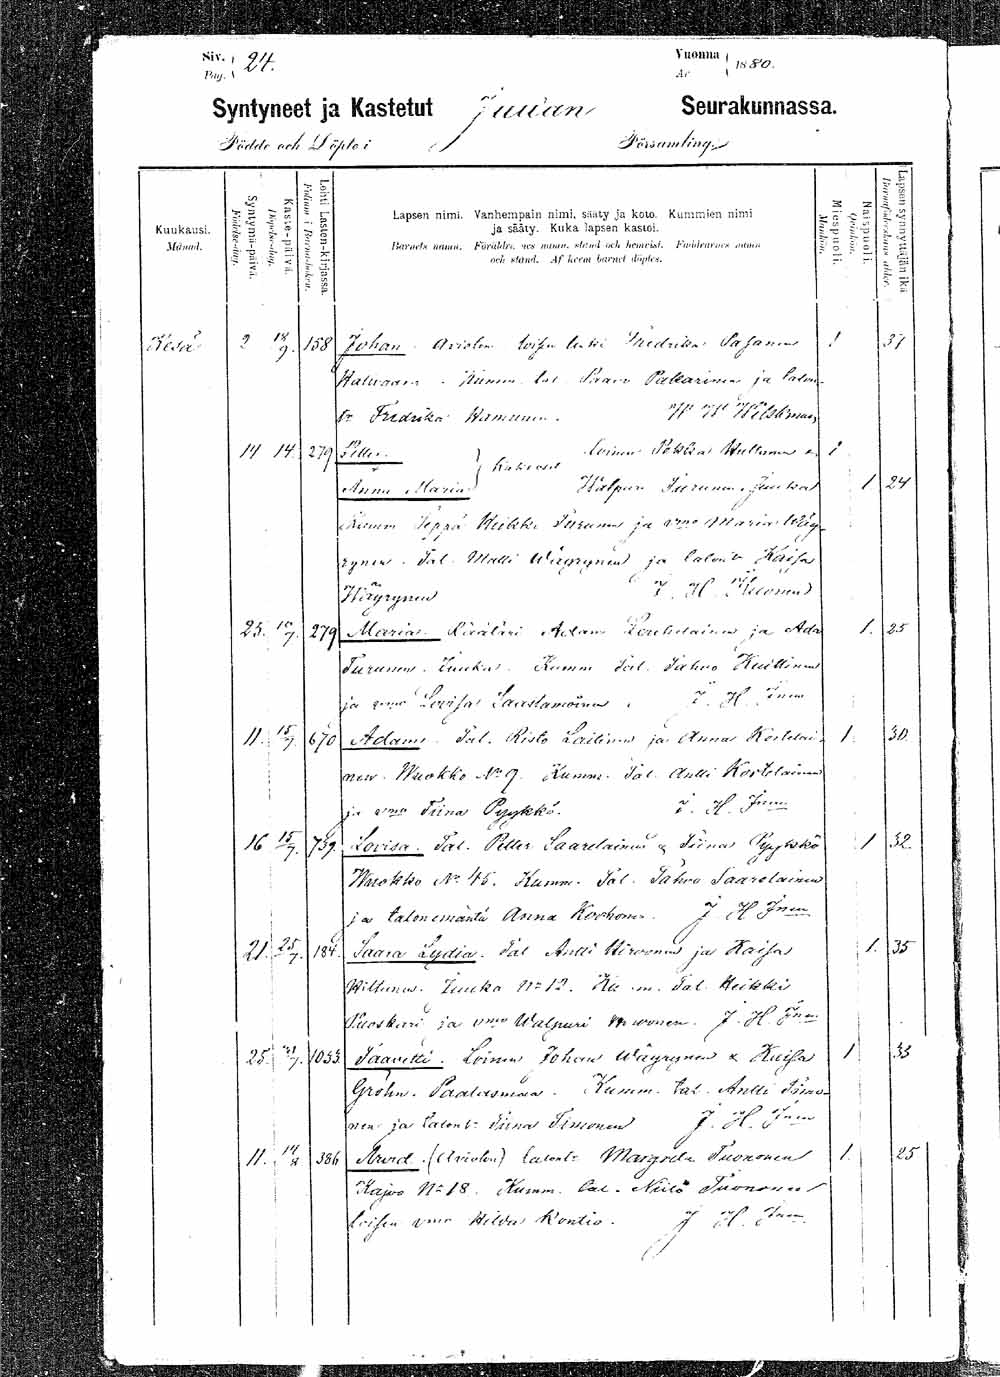 Siv. 24.
Pag.
Vuonna 1880.
År
Syntyneet ja Kastetut Juuan Seurakunnassa.
Födde och Döpte i Församling.
Kuukausi.
Månad.
Syntymä-päivä.
Födelse-dag.
Kaste-päivä.
Döpelse-dag.
Lehti Lasten-kirjassa.
Folium i Barna-boken.
Lapsen nimi. Vanhempain nimi, sääty ja koto. Kummien nimi
ja sääty. Kuka lapsen kastoi.
Barnets namn. Föräldrarnes namn, stånd och hemvist. Faddrarnes namn
och stånd. Af hvem barnet döptes.
Miespuoli.
Mankön.
Naispuoli.
Qvinkön.
Lapsen synnyttäjän ikä
Barnaföderskans ålder.
Kesä 2 18/9. 158 Johan. Aviolon loisen leski Fredrika 1 37
Kumm. tal. Paavo Pakarinen ja talon-
tr Fredrika
14 14. 279 Petter 1
Anna Maria kaksoset loinen Pekka Hiltunen &
Walpuri Turunen. Juuka 1 24
Kumm Seppä Heikki Turunen ja vmo Maria Wäy-
rynen. Tal. Matti Wäyrynen ja talontr Kaisa
Wäyrynen J. H.
25. 10/7. 279 Maria. Räätäri Adam Lerchelainen ja Ada 1. 25
Turunen. Juuka. Kumm Tal. Tahvo Kuittinen
ja vmo Lovisa Saastamoinen. J. H.
11. 15/7. 670 Adam. Tal. Risto Laitinen ja Anna Kortelai- 1. 30
nen. Wuokko No 9. Kumm. Tal. Antti Kortelainen
ja vmo Tiina Pyykkö. J. H.
16 15/7. 739. Lovisa. Tal. Petter Saarelainen & Tiina Pyykkö 1 32
Wuokko No 45. Kumm. Tal. Tahvo Saarelainen
ja talonemäntä Anna Korhonen. J H
21. 25/7. 184. Saara Lydia. Tal Antti Hirvonen ja Kaisa 1. 35
Hiltunen. Juuka No 12. Kumm. Tal. Heikki
Puoskari ja vmo Walpuri J. H.
25. 1033. Taavetti. Loinen Johan Wäyrynen & Kaisa 1 33
Gröhn. Paalasmaa. Kumm. tal. Antti Timo-
nen ja talontr Tiina Timonen J. H.
11. 14/8 386 Arvid. (Avioton) talontr Margreta Tuononen 1. 25
Kajoo No 18. Kumm. tal. Niilo Tuononen
loisen vmo Hilda Kontio. J H